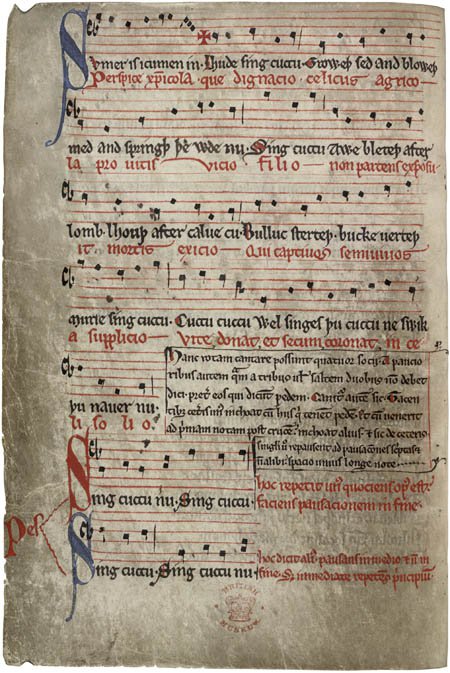 Sumer is icumen in. Lhude sing cuccu. Groweþ sed and bloweþ
Perspice xp̄icola. que dignacio. celicus agrico
med and springþ þe wde nu. Sing cuccu Awe bleteþ after
la pro uitis vicio filio non parcens exposu
lomb. lhouþ after calue cu. Bulluc sterteþ. bucke uerteþ
it mortis exicio Qui captiuos semiuiuos
murie sing cuccu. Cuccu cuccu Wel singes þu cuccu ne swik
a supplicio Vite donat. et secum coronat. in ce
þu nauer nu.
li solio.
Hanc rotam cantare possunt quatuor socii. A pauciο
ribus autem quam a tribus uel saltem duobus non debet
dici. preter eos qui dicunt pedem. Canitur autem sic. Tacen
tibus ceteris unus inchoat cum hiis qui tenent pedem. Et cum uenerit
ad primam notam post crucem. inchoat alius. et sic de ceteris
singli
Pes
Sing cuccu nu. Sing cuccu.
hoc repetit unus quociens opus est.
faciens pausacionem in fine.
Sing cuccu. Sing cuccu nu
hoc dicit alius. pausans in medio et non in
fine. Set immediate repetens principium.
BRITISH MUSEUM